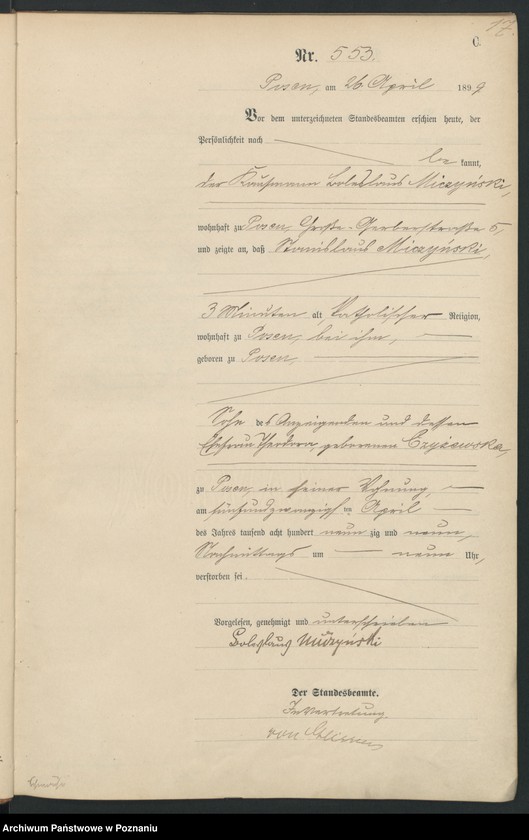 17.
C.
Nr. 553.
Posen, am 26 April 1899
Vor dem unterzeichneten Standesbeamten erschien heute, der
Persönlichkeit nach
be kannt,
der Kaufmann Boleslaus Miczyński,
wohnhaft zu Posen, Große-Gerberstraße 5,
und zeigte an, daß Stanislaus Miczyński,
3 Minuten alt, katholischer Religion,
wohnhaft zu Posen, bei ihm,
geboren zu Posen,
Sohn des Anzeigenden und dessen
Ehefrau Theodora, geborenen Czyżewska,
zu Posen, in seiner Wohnung,
am fünfundzwanzigsten April
des Jahres tausend acht hundert neun zig und neun,
Nachmittags um neun Uhr,
verstorben sei.
Vorgelesen, genehmigt und unterschrieben
Boleslaus Miczyński
Der Standesbeamte.
In Vertretung.
von
Archiwum Państwowe w Poznaniu